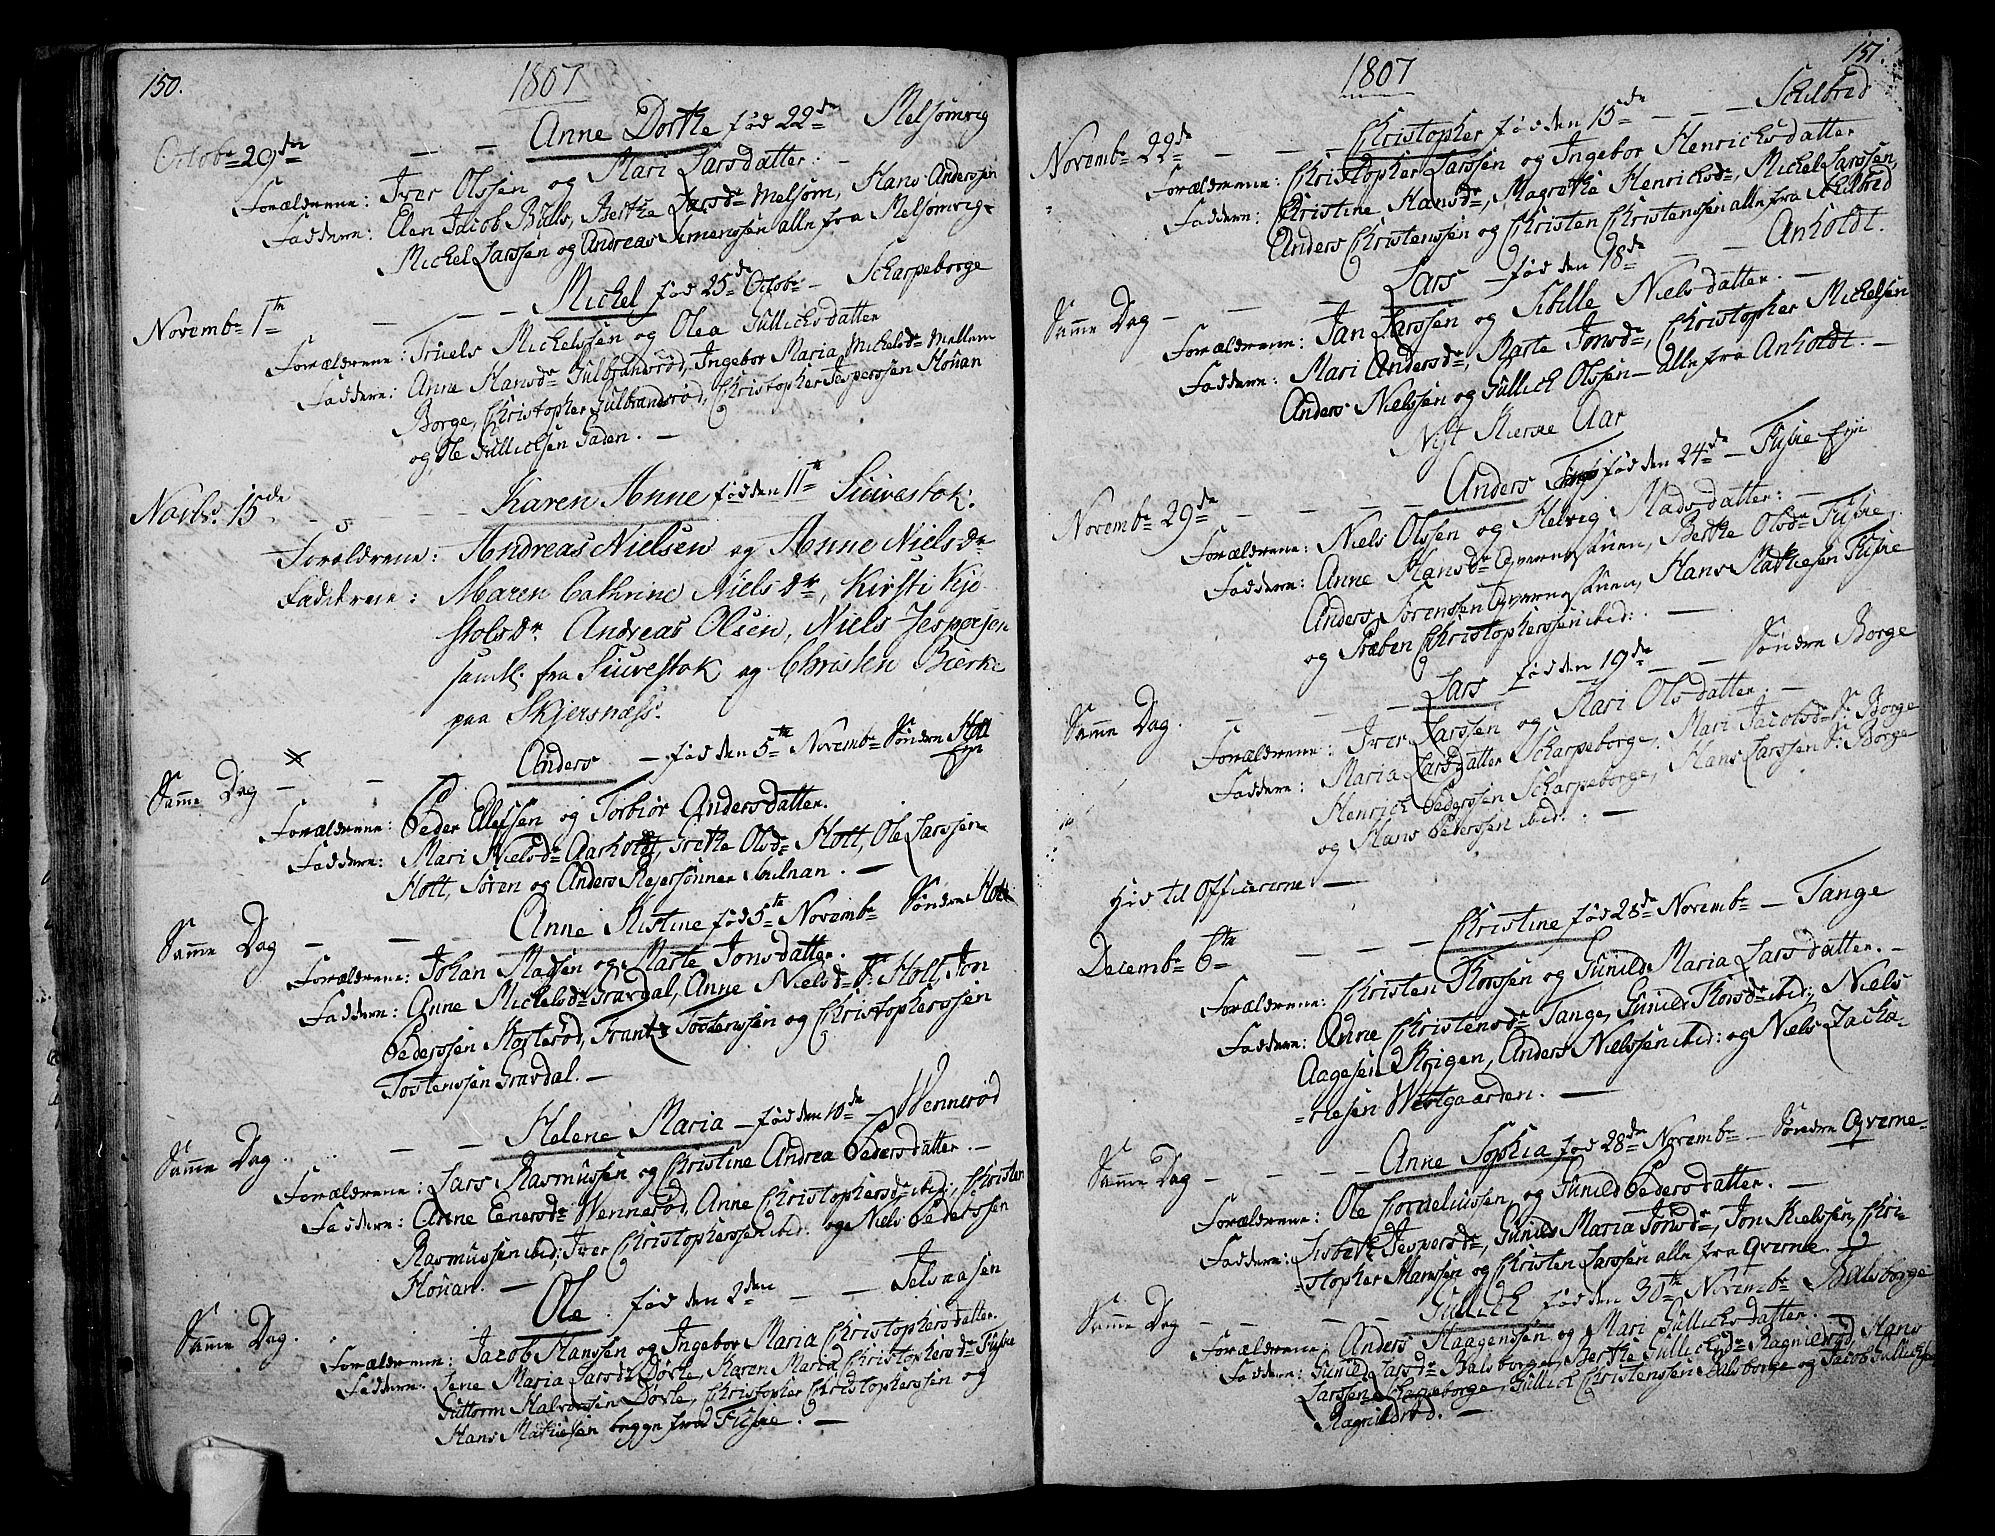 150.
1807
Octob: 29de — — Anne Dorthe fød 22de Melsomvig
Forældrene: Iver Olssen og Mari Larsdatter. —
Faddere: Elen Jacob Bulls, Berthe Larsdr Melsom, Hans Anderssen
Michel Larssen og Andreas Simenssen alle fra Melsomvig.
Novemb: 1te — — Michel fød 25de Octob: — Scharpeborge
Forældrene: Truels Michelssen og Olea Gullichsdatter
Faddere: Anne Hansdr Gulbrandsrød, Ingebor Maria Michelsdr Mellem
Borge, Christopher Gulbrandsrød, Christopher Jesperssen Houan
og Ole Gullichsen Gaden. —
Novbr. 15de — — Karen Anne fød den 11te Siuvestok:
Forældrene: Andreas Nielsen og Anne Nielsdr
Fadderne: Maren Cathrine Nielsdr, Kirsti Kje
stolsdr Andreas Olsen, Niels Jespersen
samtl. fra Siuvestok og Christen Bierke
paa Skjersnæss.
Samme Dag — — Anders — fød den 5te Novemb: Søndre Holt
Eje
Forældrene: Peder Ellefsen og Torbiør Andersdatter.
Faddere: Mari Nielsdr Aarholdt, Grethe Olsdr Holt, Ole Larssen
Holt, Søren og Anders Rejersønner Sulnan. —
Samme Dag — — Anne Kistine fød 5te Novemb: Søndre Holt
Forældrene: Johan Madsen og Marte Jonsdatter.
Faddere: Anne Michelsdr Gravdal, Anne Nielsdr S: Holt, Jon
Pederssen Korterød, Frants Tostenssen og Christopherssen
Tostenssen Gravdal. —
Samme Dag. — — Helene Maria — fød den 10de — Wennerød
Forældrene: Lars Rasmussen og Christine Andrea Pedersdatter. —
Faddere: Anne Enersdr Wennerød, Anne Christophersdr ibid: Christen
Rasmussen ibid: Iver Christopherssen ibid: og Niels Pederssen
Houan. —
Samme Dag. Ole. fød den 2den — — Jelsaasen
Forældrene: Jacob Hanssen og Ingebor Maria Christophersdatter.
Faddere: Lene Maria Larsdr Dørke, Karen Maria Christophersdr Fusre
Guttorm Halvorsen Dørke, Christopher Christopherssen og
Hans Mathiesen begge fra Fusre. —
151.
1807
Novemb: 22de — — — Christopher fød den 15de — — — Schilbred
Forældrene: Christopher Larssen og Ingebor Henrichsdatter
Faddere: Christine Hansdr, Magrethe Henrichsdr, Michel Larssen,
Anders Christenssen og Christen Christenssen alle fra Skilbred
Samme Dag — — Lars — fød den 18de — — Anholdt.
Forældrene: Jan Larssen og Sibille Nielsdatter. —
Faddere: Mari Andersdr, Marte Jonsdr, Christopher Michelsen
Anders Nielssen og Gullich Olssen — alle fra Anholdt. —
Nyt Kierke Aar
Novemb: 29de — — — Anders fød den 24de — Fusre Eje
Forældrene: Niels Olssen og Helvig Madsdatter: —
Faddere: Anne Hansdr Qvernesstuen, Berthe Olsdr Fusre,
Anders Sørenssen Qvernesstuen, Hans Mathiesen Fusre
og Preben Christopherssen ibid: —
Samme Dag. — — Lars fød den 19de — — Søndre Borge
Forældrene: Iver Larssen og Kari Olsdatter: —
Faddere: Maria Larsdatter Scharpeborge, Mari Jacobsdr S: Borge
Henrich Pederssen Scharpeborge, Hans Larssen S: Borge
og Hans Pederssen ibid: —
Hid til Officierne —
Decemb: 6te — — Christine fød 28de Novemb: — Tange
Forældrene: Christen Thorssen og Gunild Maria Larsdatter. —
Faddere: Anne Christensdr Tange, Gunild Thorsdr ibid:, Niels
Aagesen Krigen, Anders Nielssen ibid: og Niels Zacha-
-riesen Westgaarden. —
Samme Dag — — — Anne Sophia fød 28de Novemb: — Søndre Qverne-
Forældrene: Ole Cordeliussen og Gunild Pedersdatter. —
Faddere: Lisbeth Jespersdr, Gunild Maria Jonsdr, Jon Nielssen, Chri-
-stopher Hanssen og Christen Larssen alle fra Qverne. —
Samme Dag — — — Gullich fød den 30te Novemb: Balsborge
Forældrene: Anders Haagenssen og Mari Gullichsdatter. —
Faddere: Gunild Larsdr Balsborge, Berthe Gullichsdr Ragnildrød, Hans
Larssen Scharpeborge, Gullich Christenssen Balsborge og Jacob Gullichsen
Ragnildrød. —